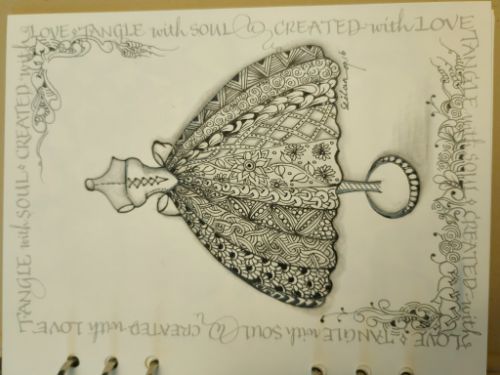 TANGLE with SOUL & CREATED with
LOVE & TANGLE with SOUL & CREATED with LOVE
TANGLE with SOUL & CREATED with
LOVE & TANGLE with SOUL & CREATED with LOVE